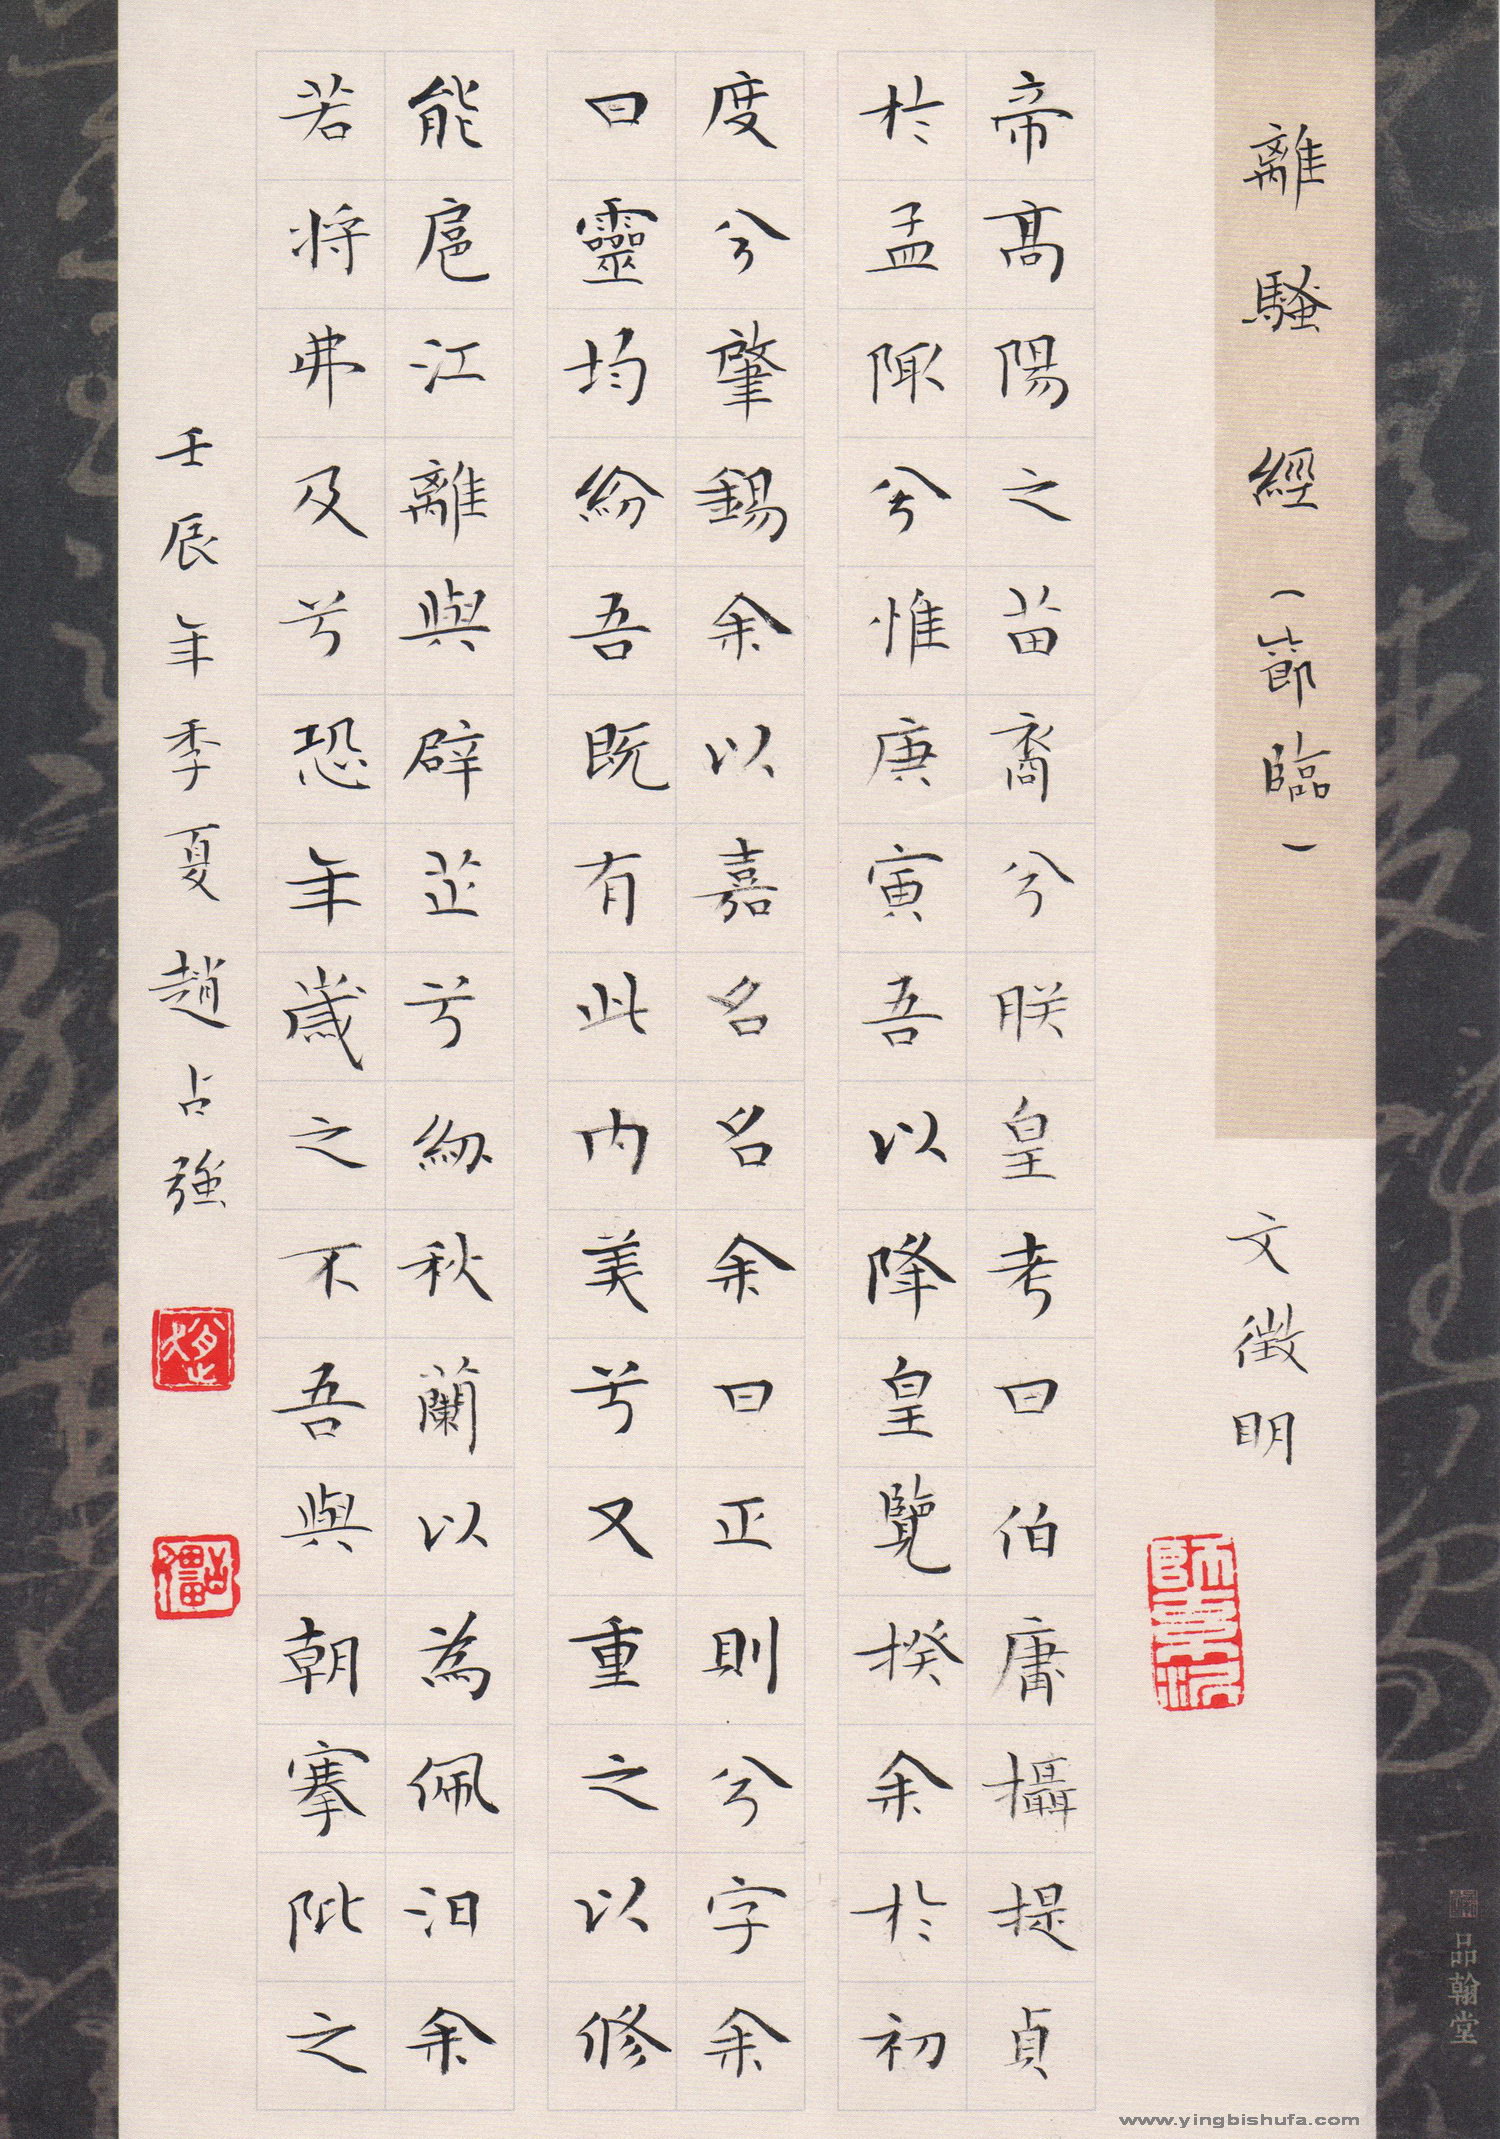 離騷經(節臨)
文徵明
帝高陽之苗裔兮朕皇考曰伯庸攝提貞
於孟陬兮惟庚寅吾以降皇覽揆余於初
度兮肇錫余以嘉名名余曰正則兮字余
曰靈均紛吾既有此内美兮又重之以修
能扈江離與辟芷兮紉秋蘭以為佩汨余
若將弗及兮恐年歲之不吾與朝搴阰之
壬辰年季夏趙占強
品翰堂
www.yingbishufa.com